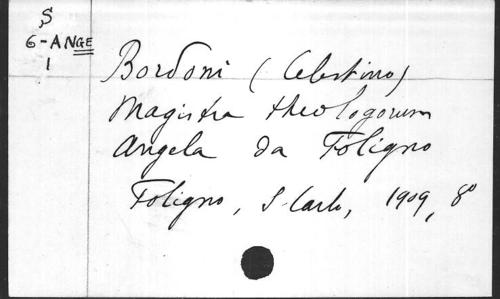 S
6-ANGE
1
Bordoni (Celestino)
Magistra theologorum
Angela da Foligno
Foligno, S. Carlo, 1909, 8°